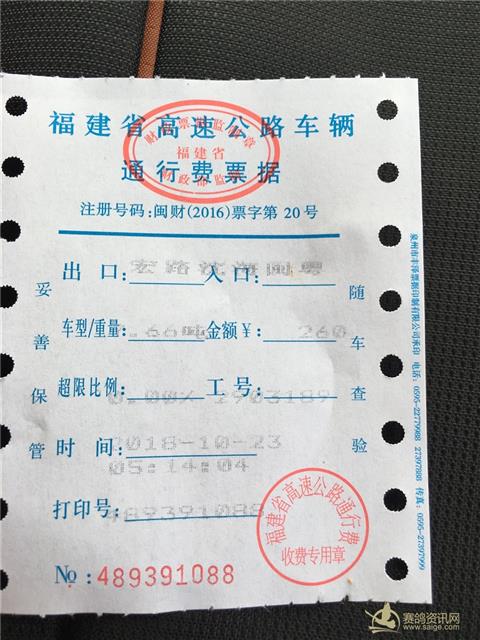 福建省高速公路车辆
通行费票据
财政票据监制章
福建省
财政部监制
注册号码:闽财(2016)票字第20号
出口: 宏路 入口: 闽粤
车型/重量: .66吨 金额¥: 260
超限比例: 0.00% 工号: 2903189
时间: 2018-10-23
05:14:04
打印号: 489391088
№: 489391088
妥善保管
随车查验
福建省高速公路通行费
收费专用章
泉州市丰泽票据印制有限公司承印 电话: 0595-22779988 27397888 传真: 0595-27397999
赛鸽资讯网
www.saige.com